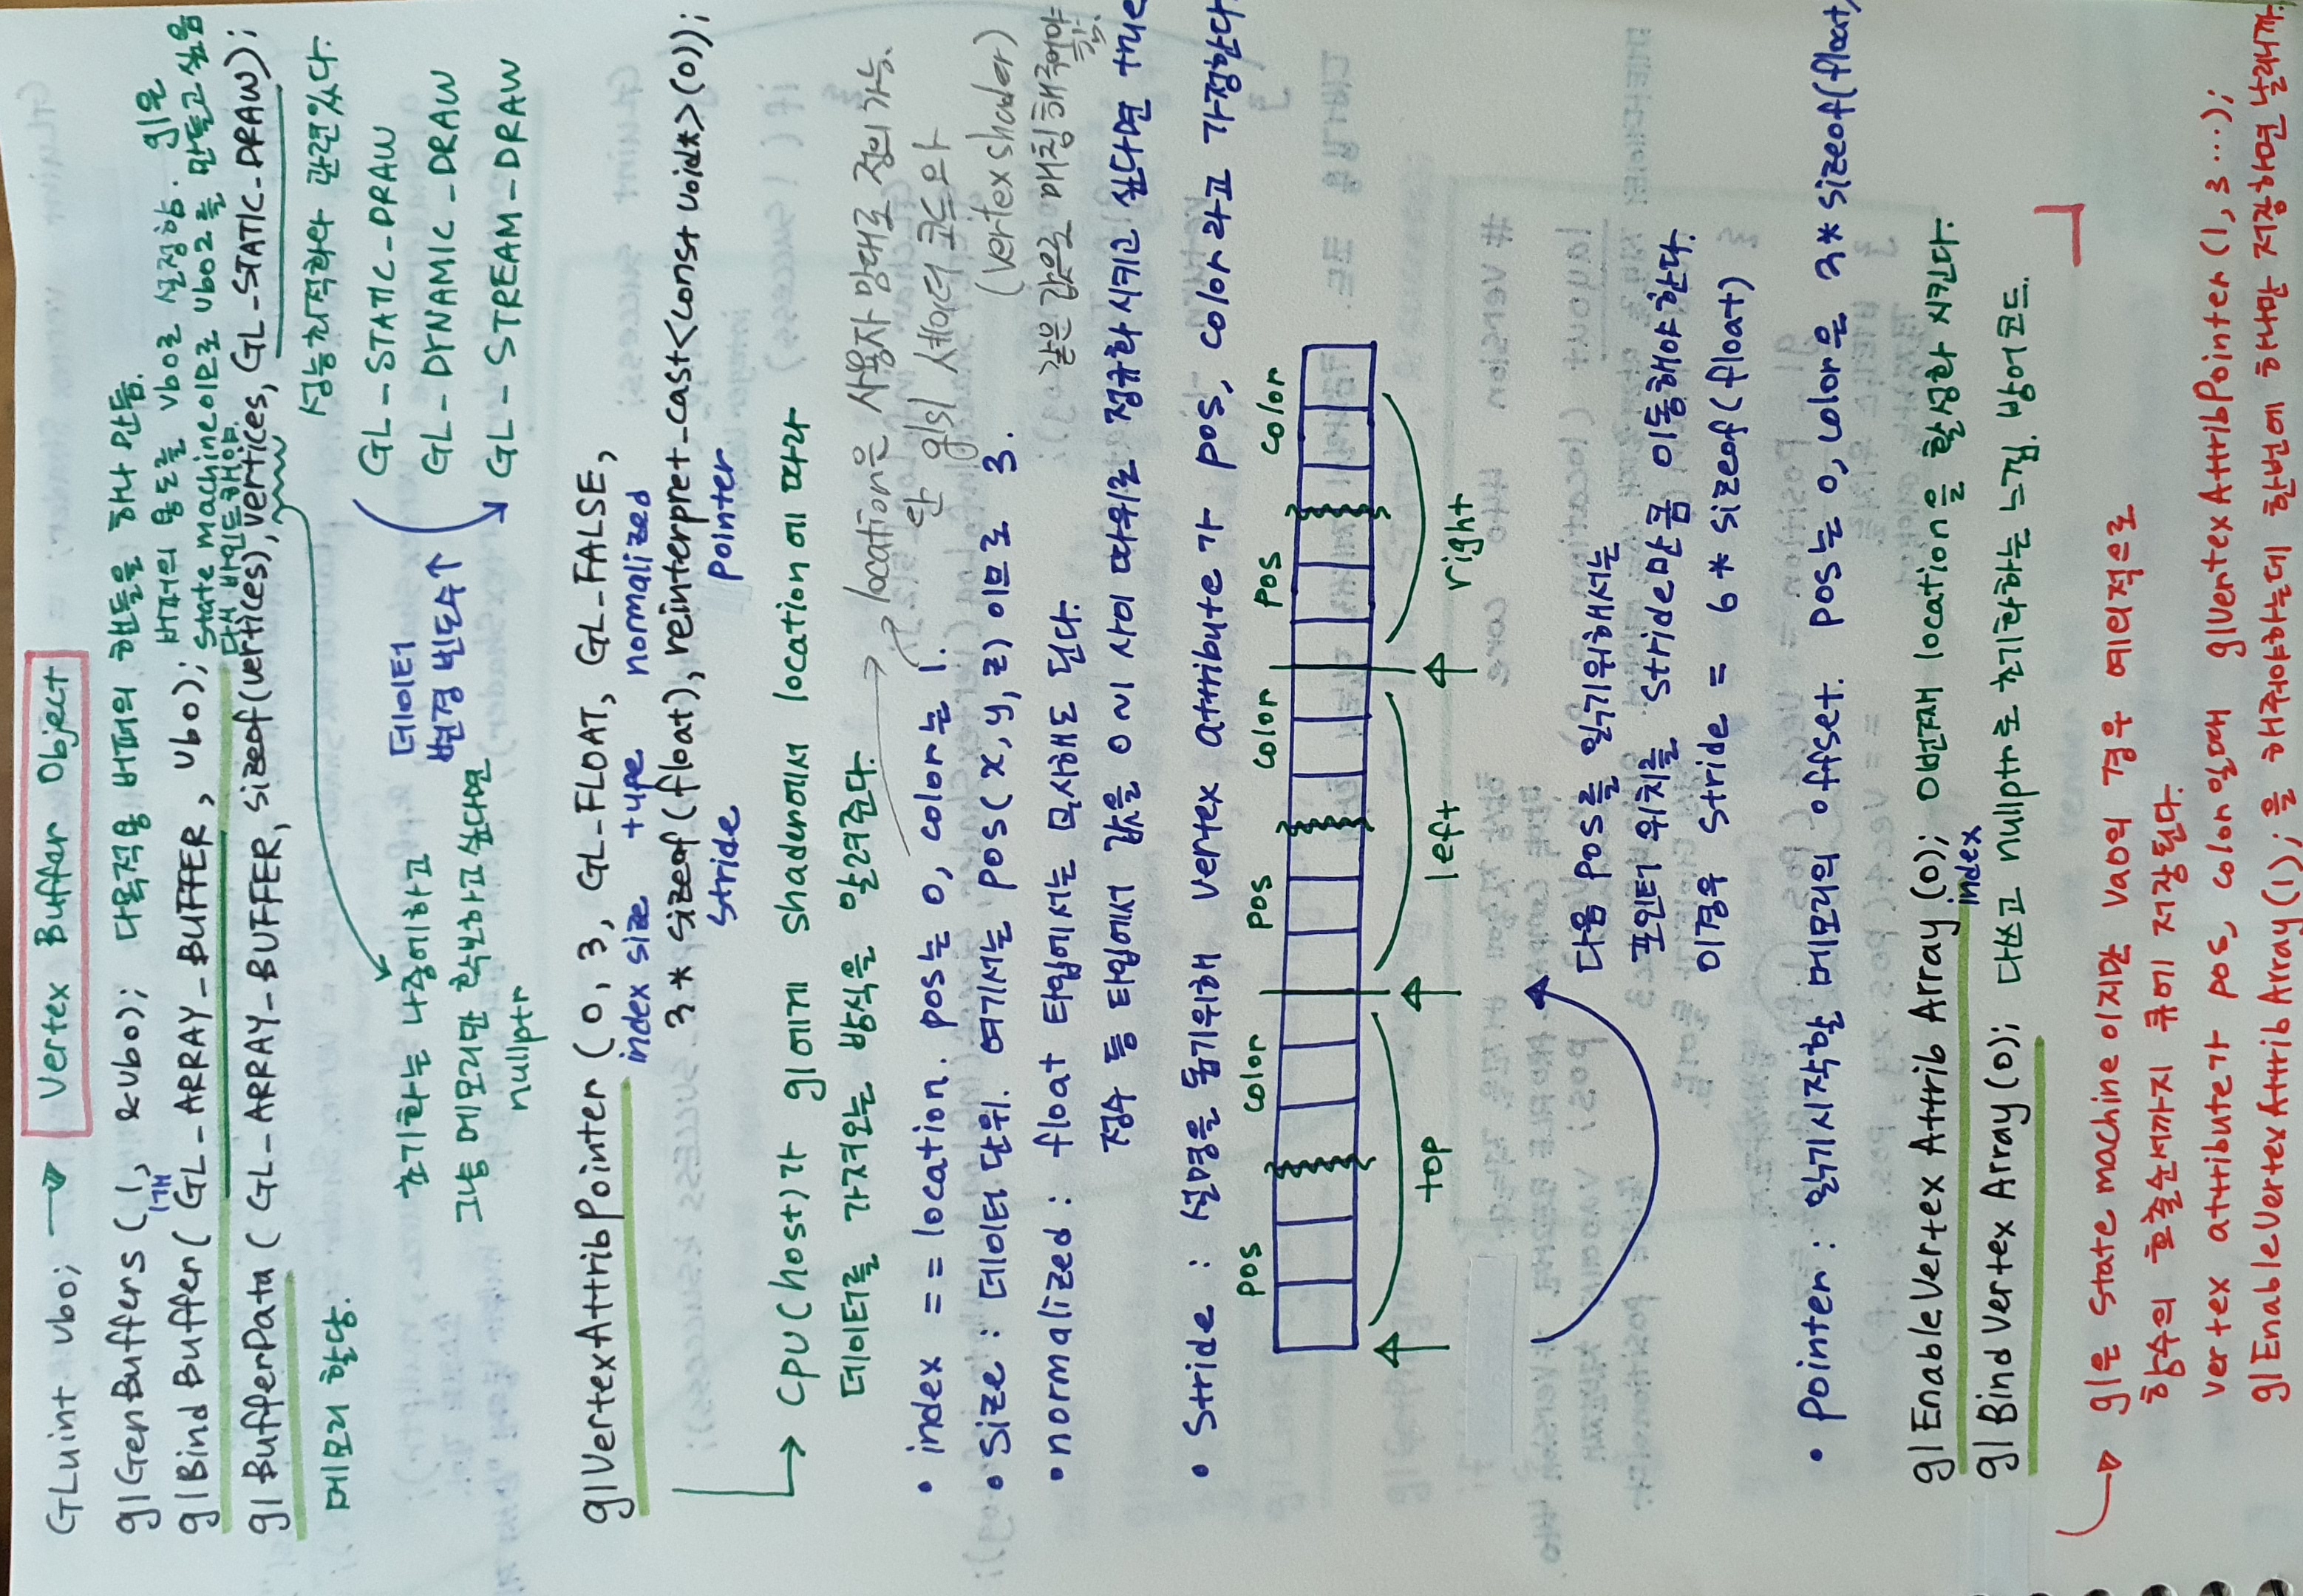 GLuint vbo; → Vertex Buffer Object
glGenBuffers (1, &vbo); 다목적용 버퍼의 핸들을 하나 만듬.
1개
glBindBuffer( GL_ARRAY_BUFFER, vbo); 버퍼의 용도를 vbo로 설정함. gl은
state machine이므로 vbo2를 만들고 싶음
다시 바인드해야.
glBufferData ( GL_ARRAY_BUFFER, sizeof(vertices), vertices, GL_STATIC_DRAW);
메모리 할당.
성능최적화와 관련있다.
초기화는 나중에하고
그냥 메모리만 확보하고 싶다면
nullptr
데이터
변경 빈도수↑
GL_STATIC_DRAW
GL_DYNAMIC_DRAW
GL_STREAM_DRAW
glVertexAttribPointer (0, 3, GL_FLOAT, GL_FALSE,
index size type normalized
3 * sizeof(float), reinterpret_cast<const void*>(0));
stride pointer
→ CPU(host)가 gl에게 shader에서 location에 따라
데이터를 가져오는 방식을 알려준다.
→ location은 사용자 맘대로 정의 가능.
단 glsl 셰이더 코드와
(vertex shader)
같은 값으로 매칭해주어야
함.
• index == location. pos는 0, color는 1.
• size : 데이터 단위. 여기서는 pos(x,y,z) 이므로 3.
• normalized : float 타입에서는 묵사해도 된다.
정수 등 타입에서 값을 0~1 사이 따위로 정규화 시키고 싶다면 true
• stride : 설명을 돕기위해 vertex attribute가 pos, color라고 가정한다.
pos color pos color pos color
top left right
다음 pos를 읽기위해서는
포인터 위치를 stride만큼 이동해야 한다.
이경우 stride = 6 * sizeof(float)
• pointer : 읽기시작할 메모리의 offset. pos는 0, color은 3*sizeof(float)
glEnableVertexAttribArray(0); 0번째 location을 활성화 시킨다.
index
glBindVertexArray(0); 다쓰고 nullptr로 초기화하는 느낌. 방어코드.
→ gl은 state machine 이지만 vao의 경우 예외적으로
함수의 호출순서까지 큐에 저장된다.
vertex attribute가 pos, color일때 glVertexAttribPointer(1, 3 ...);
glEnableVertexAttribArray(1); 을 해줘야하는데 한번에 하나만 저장하면 날리니까.